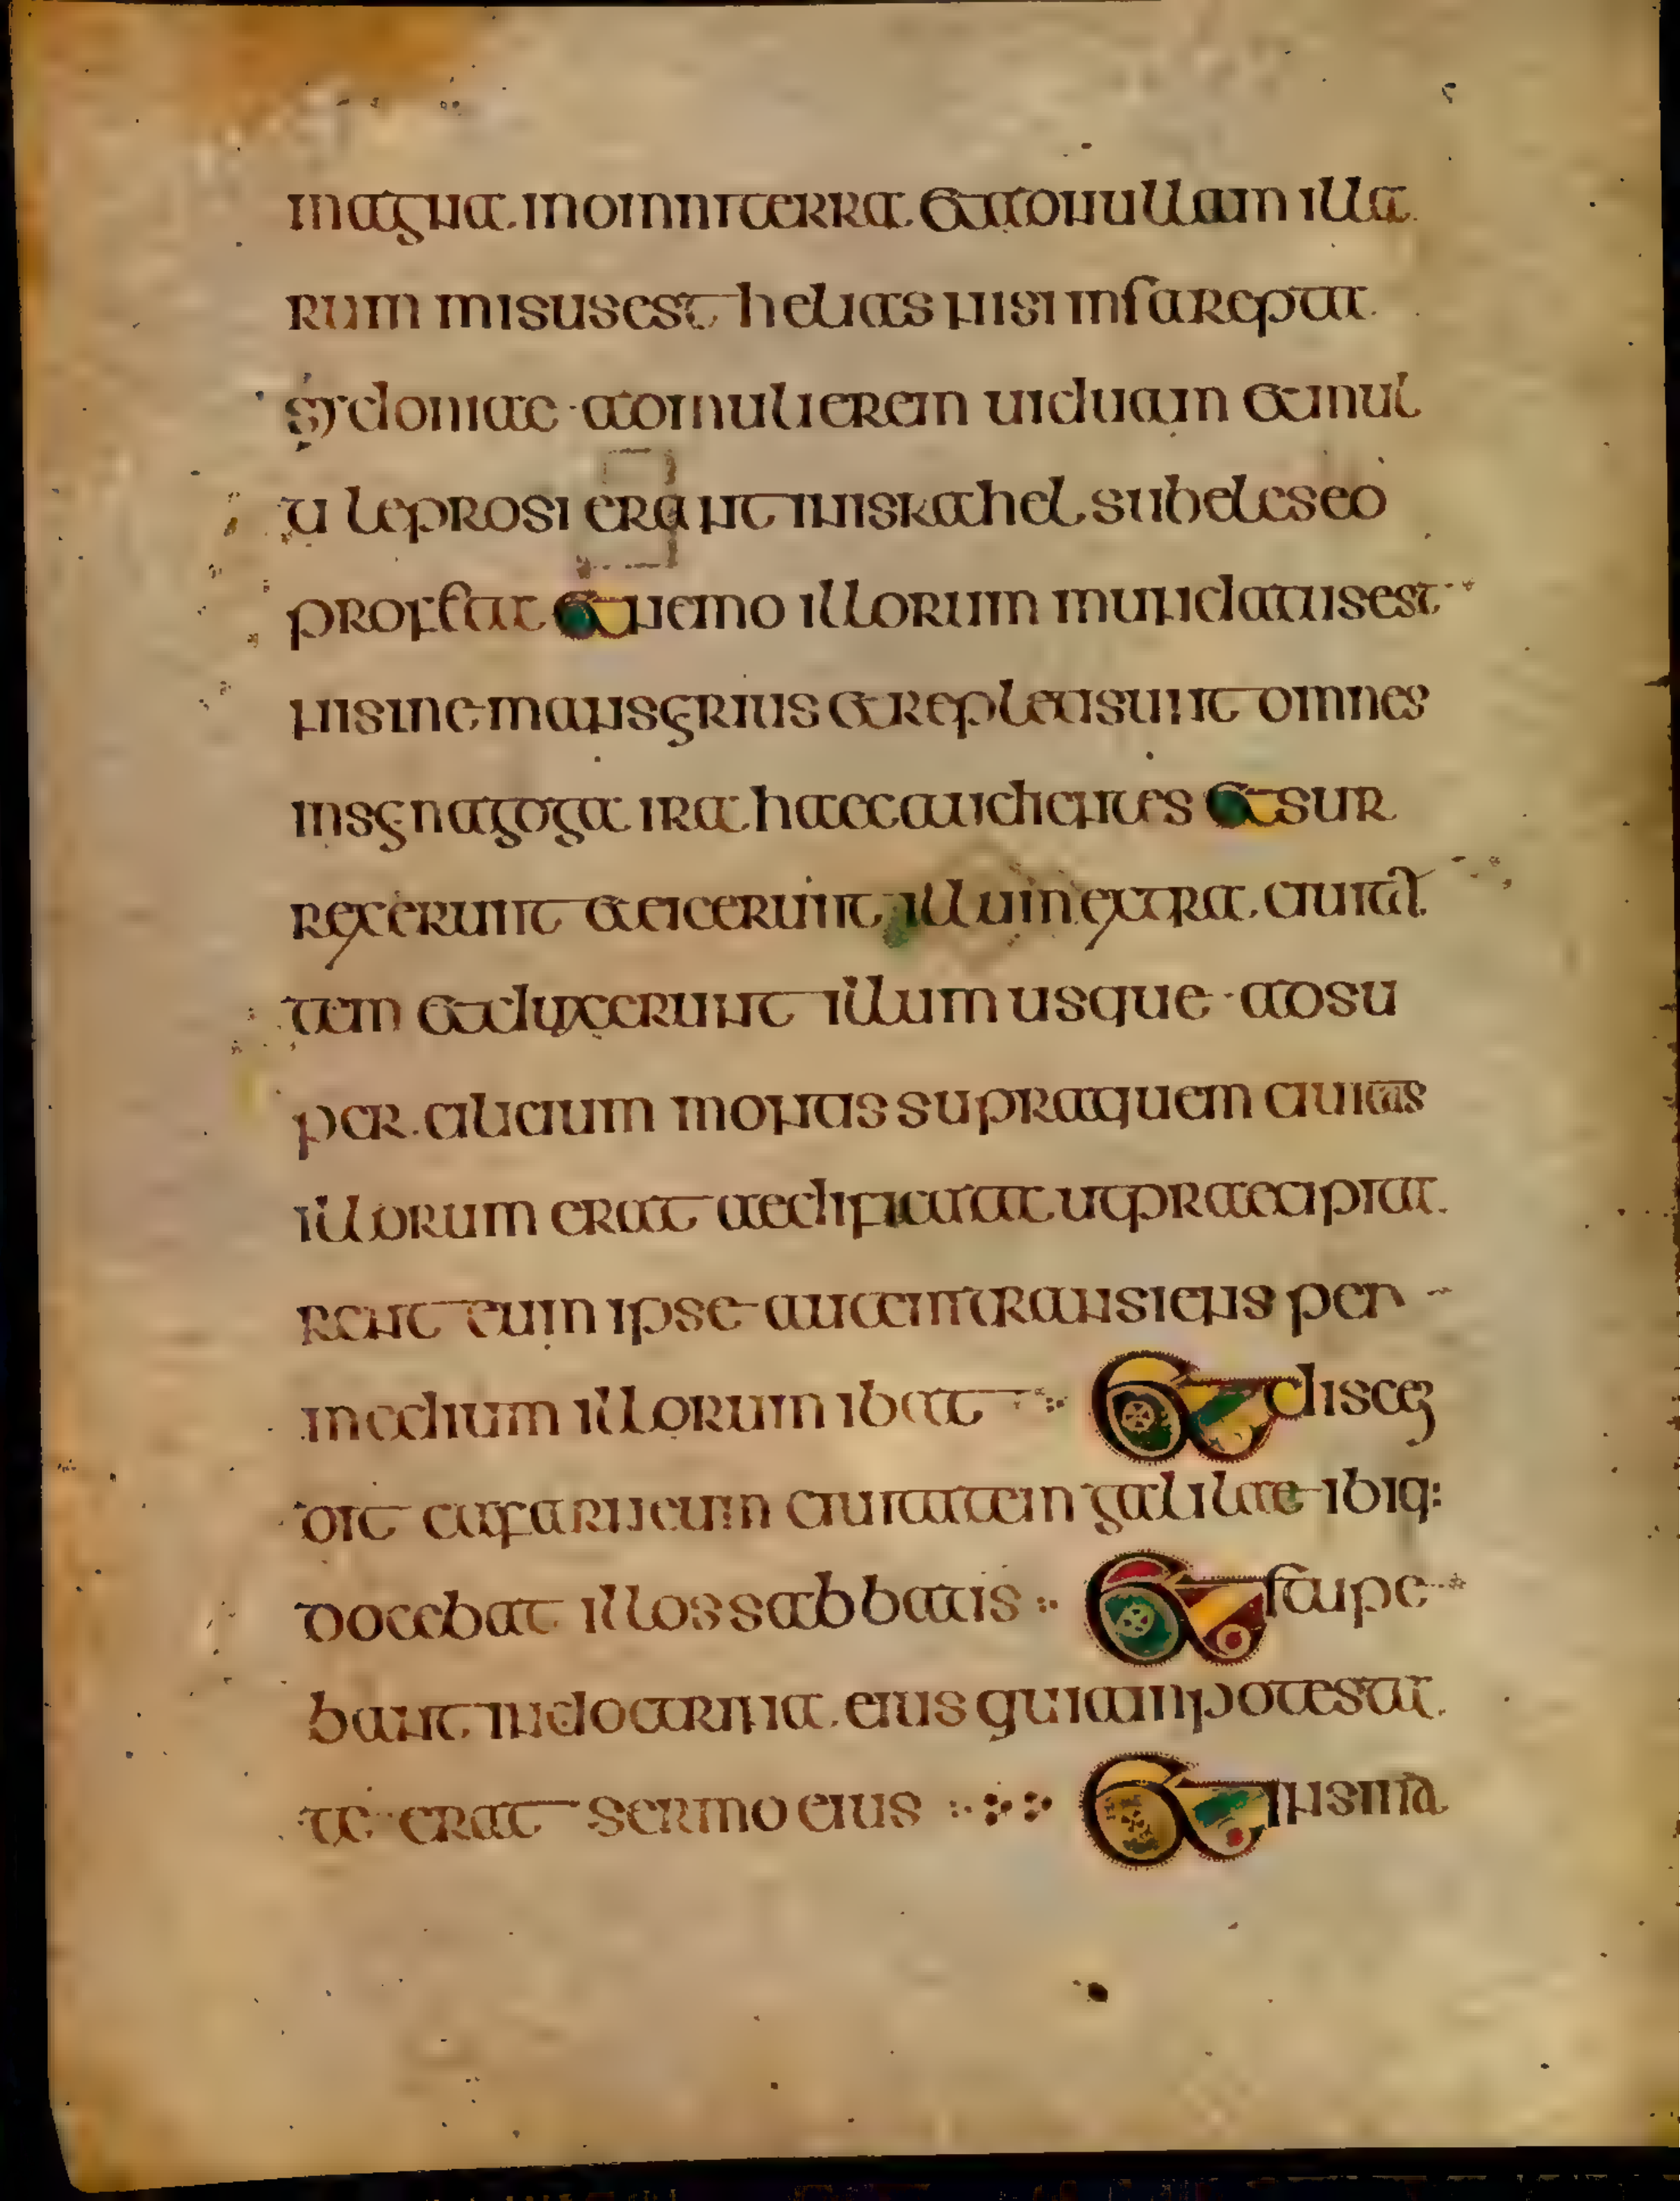 magna in omni terra et ad nullam illa
rum misus est helias nisi in sarepta
sydoniae ad mulierem uiduam et mul
ti leprosi erant in israhel sub eleseo
profeta et nemo illorum mundatus est
nisi neman syrius et repleti sunt omnes
in synagoga ira haec audientes et sur
rexerunt et eicerunt illum extra ciuita
tem et duxerunt illum usque ad su
per cilium montis supra quem ciuitas
illorum erat aedificata ut praecipita
rent eum ipse autem transiens per
medium illorum ibat et discen
dit cafarnaum ciuitatem galilae ibiq:
docebat illos sabbatis et stupe
bant in doctrina eius quia in potesta
te erat sermo eius et in sina